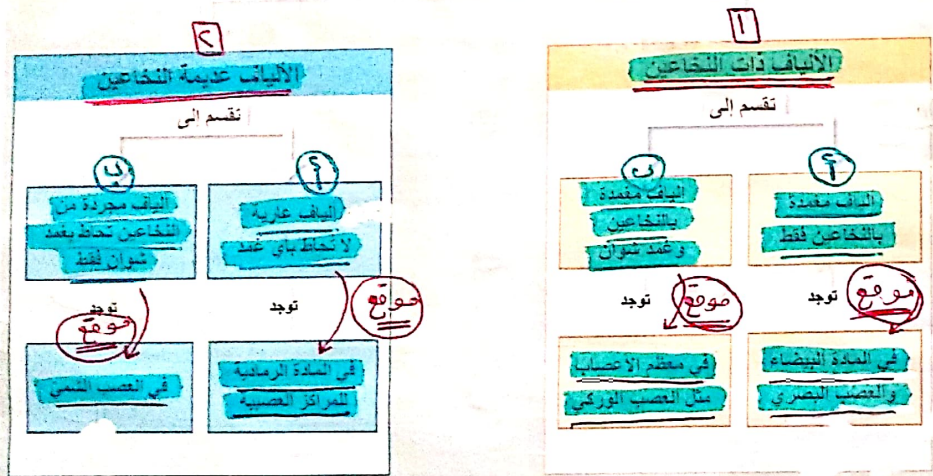 ١
الألياف ذات النخاعين
تقسم إلى
أ
ألياف مغمدة
بالنخاعين فقط
توجد
موقع
في المادة البيضاء
والعصب البصري
ب
ألياف مغمدة
بالنخاعين
وغمد شوان
توجد
موقع
في معظم الأعصاب
مثل العصب الوركي
٢
الألياف عديمة النخاعين
تقسم إلى
أ
ألياف عارية
لا تحاط بأي غمد
توجد
موقع
في المادة الرمادية
للمراكز العصبية
ب
ألياف مجردة من
النخاعين تحاط بغمد
شوان فقط
توجد
موقع
في العصب الشمي